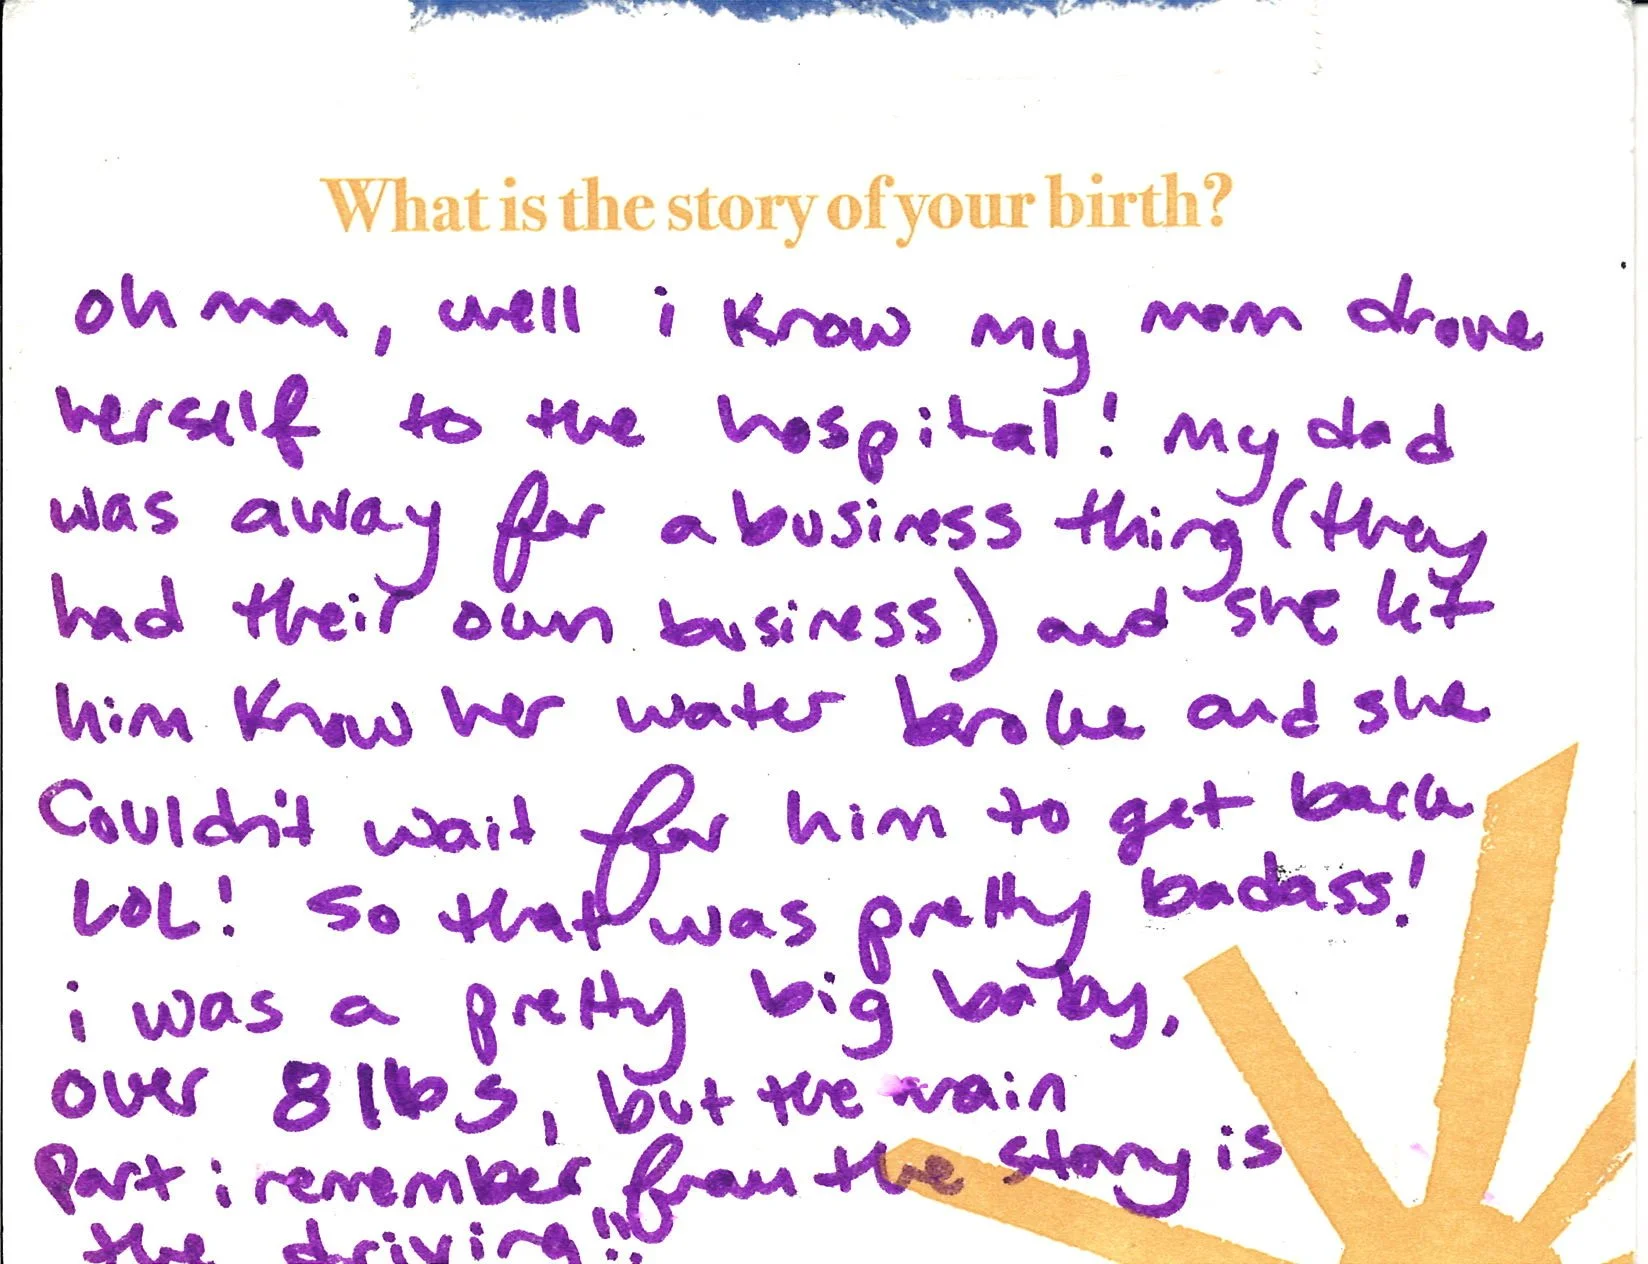 What is the story of your birth?
oh man, well i know my mom drove
herself to the hospital! My dad
was away for a business thing (they
had their own business) and she let
him know her water broke and she
Couldn't wait for him to get back
LOL! So that was pretty badass!
i was a pretty big baby,
over 8 lbs, but the main
Part i remember from the story is
the driving!!